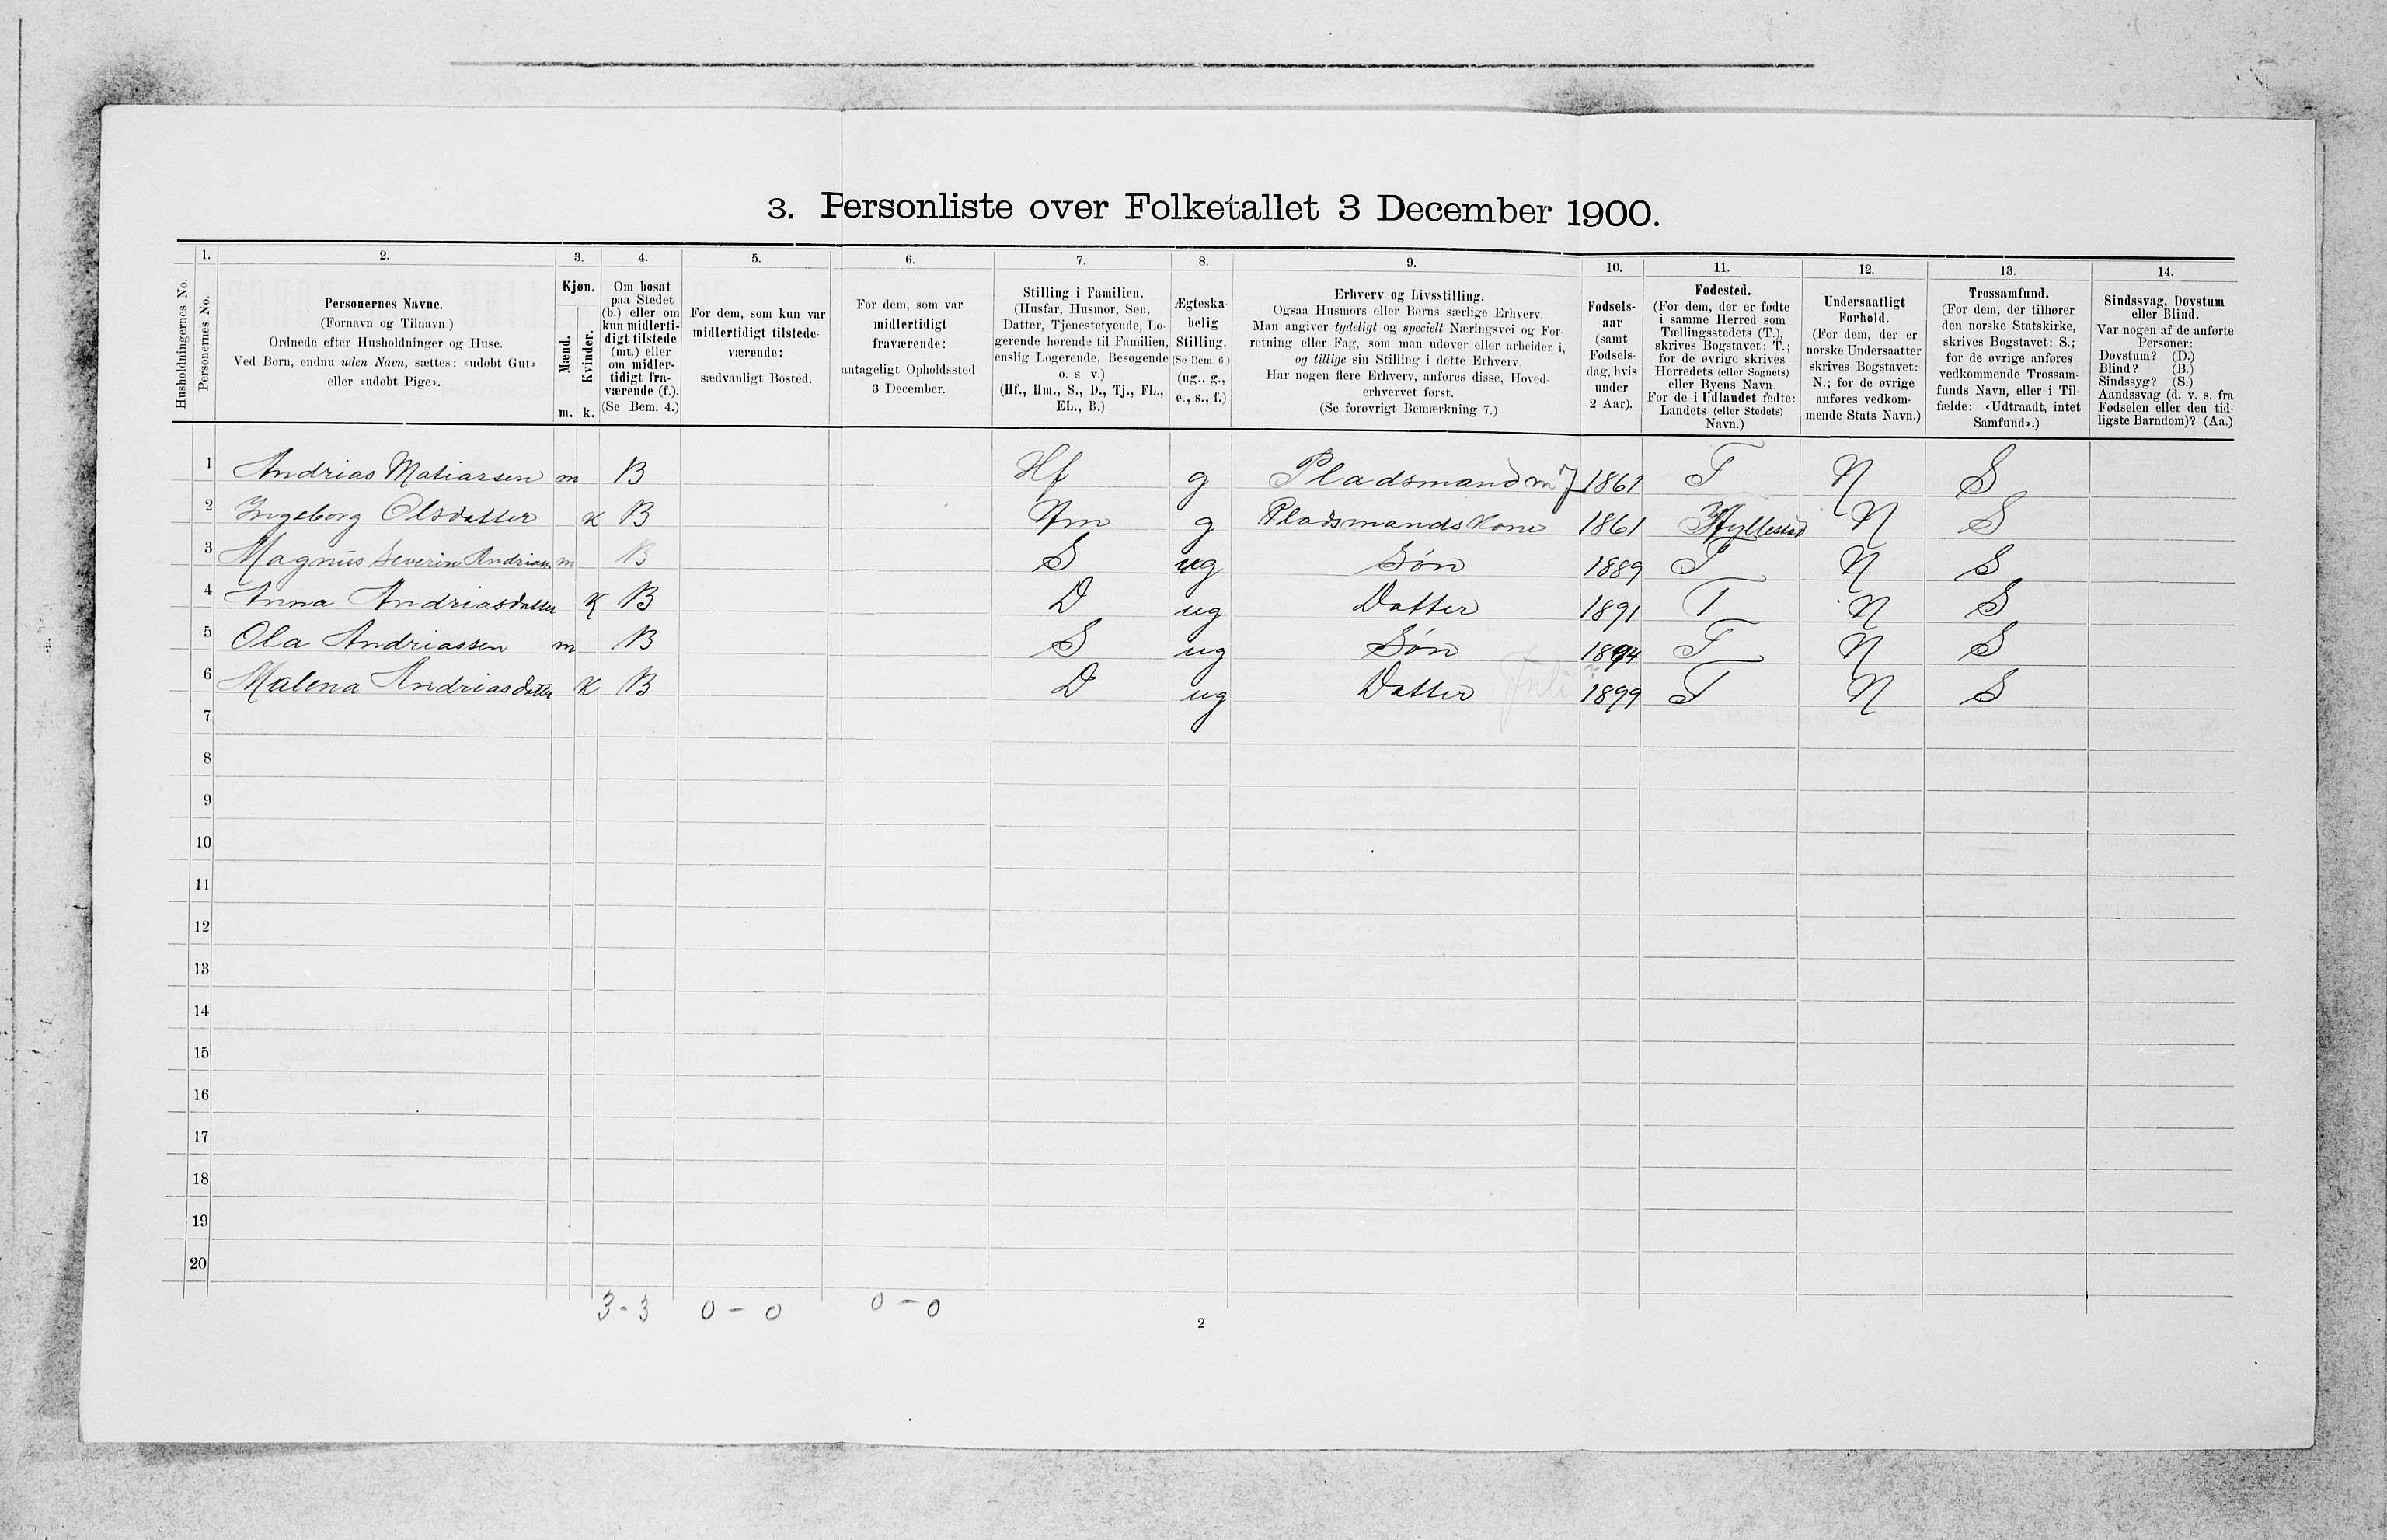 3. Personliste over Folketallet 3 December 1900.
1. 2. 3. 4. 5. 6. 7. 8. 9. 10. 11. 12. 13. 14.
Husholdningernes No.
Personernes No.
Personernes Navne.
(Fornavn og Tilnavn)
Ordnede efter Husholdninger og Huse.
Ved Børn, endnu uden Navn, sættes: «udøbt Gut»
eller «udøbt Pige».
Kjøn.
Mænd.
Kvinder.
m. k.
Om bosat
paa Stedet
(b.) eller om
kun midlerti-
digt tilstede
(mt.) eller
om midler-
tidigt fra-
værende (f.).
(Se Bem. 4.)
For dem, som kun var
midlertidigt tilstede-
værende:
sædvanligt Bosted.
For dem, som var
midlertidigt
fraværende:
antageligt Opholdssted
3 December.
Stilling i Familien.
(Husfar, Husmor, Søn,
Datter, Tjenestetyende, Lo-
gerende hørende til Familien,
enslig Logerende, Besøgende
o. s. v.)
(Hf., Hm., S., D., Tj., FL.,
EL., B.)
Ægteska-
belig
Stilling.
(Se Bem. 6.)
(ug., g.,
e., s., f.)
Erhverv og Livsstilling.
Ogsaa Husmors eller Børns særlige Erhverv.
Man angiver tydeligt og specielt Næringsvei og For-
retning eller Fag, som man udøver eller arbeider i,
og tillige sin Stilling i dette Erhverv.
Har nogen flere Erhverv, anføres disse, Hoved-
erhvervet først.
(Se forøvrigt Bemærkning 7.)
Fødsels-
aar
(samt
Fødsels-
dag, hvis
under
2 Aar).
Fødested.
(For dem, der er fødte
i samme Herred som
Tællingsstedets (T.),
skrives Bogstavet: T.;
for de øvrige skrives
Herredets (eller Sognets)
eller Byens Navn.
For de i Udlandet fødte:
Landets (eller Stedets)
Navn.)
Undersaatligt
Forhold.
(For dem, der er
norske Undersaatter
skrives Bogstavet:
N.; for de øvrige
anføres vedkom-
mende Stats Navn.)
Trossamfund.
(For dem, der tilhører
den norske Statskirke,
skrives Bogstavet: S.;
for de øvrige anføres
vedkommende Trossam-
funds Navn, eller i Til-
fælde: «Udtraadt, intet
Samfund».)
Sindssvag, Døvstum
eller Blind.
Var nogen af de anførte
Personer:
Døvstum? (D.)
Blind? (B.)
Sindssyg? (S.)
Aandssvag (d. v. s. fra
Fødselen eller den tid-
ligste Barndom)? (Aa.)
1 Andrias Matiassen m B Hf g Pladsmand m J 1861 T N S
2 Ingeborg Olsdatter K B Hm g Pladsmands Kone 1861 Hyllestad N S
3 Magnus Severin Andriass m B S ug Søn 1889 T N S
4 Anna Andriasdatter K B D ug Datter 1891 T N S
5 Ola Andriassen m B S ug Søn 1894 T N S
6 Malena Andriasdatter K B D ug Datter Juli 1899 T N S
7
8
9
10
11
12
13
14
15
16
17
18
19
20
3-3 0-0 0-0
2